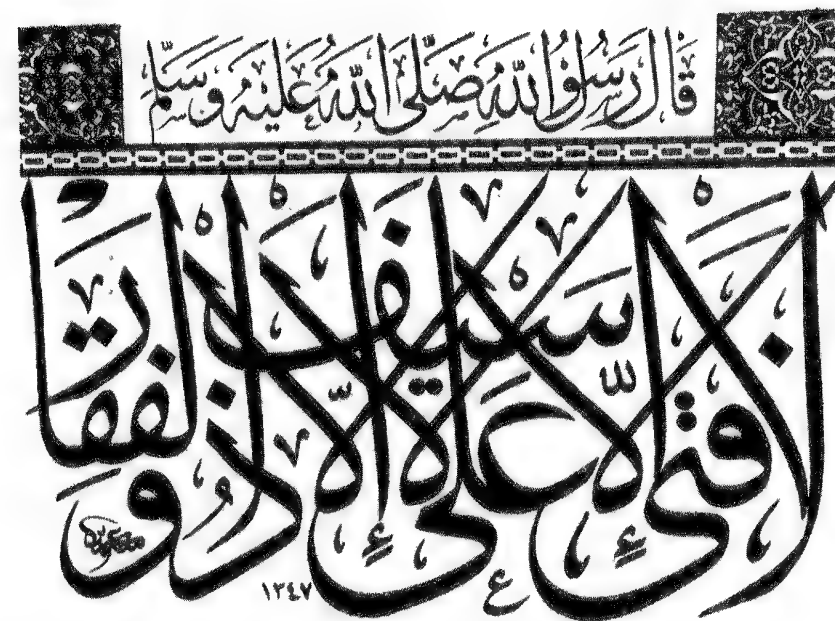 قَالَ رَسُولُ اللهِ صَلَّى اللهُ عَلَيْهِ وَسَلَّمَ
لا فتى إلا علي لا سيف إلا ذو الفقار
١٣٤٧